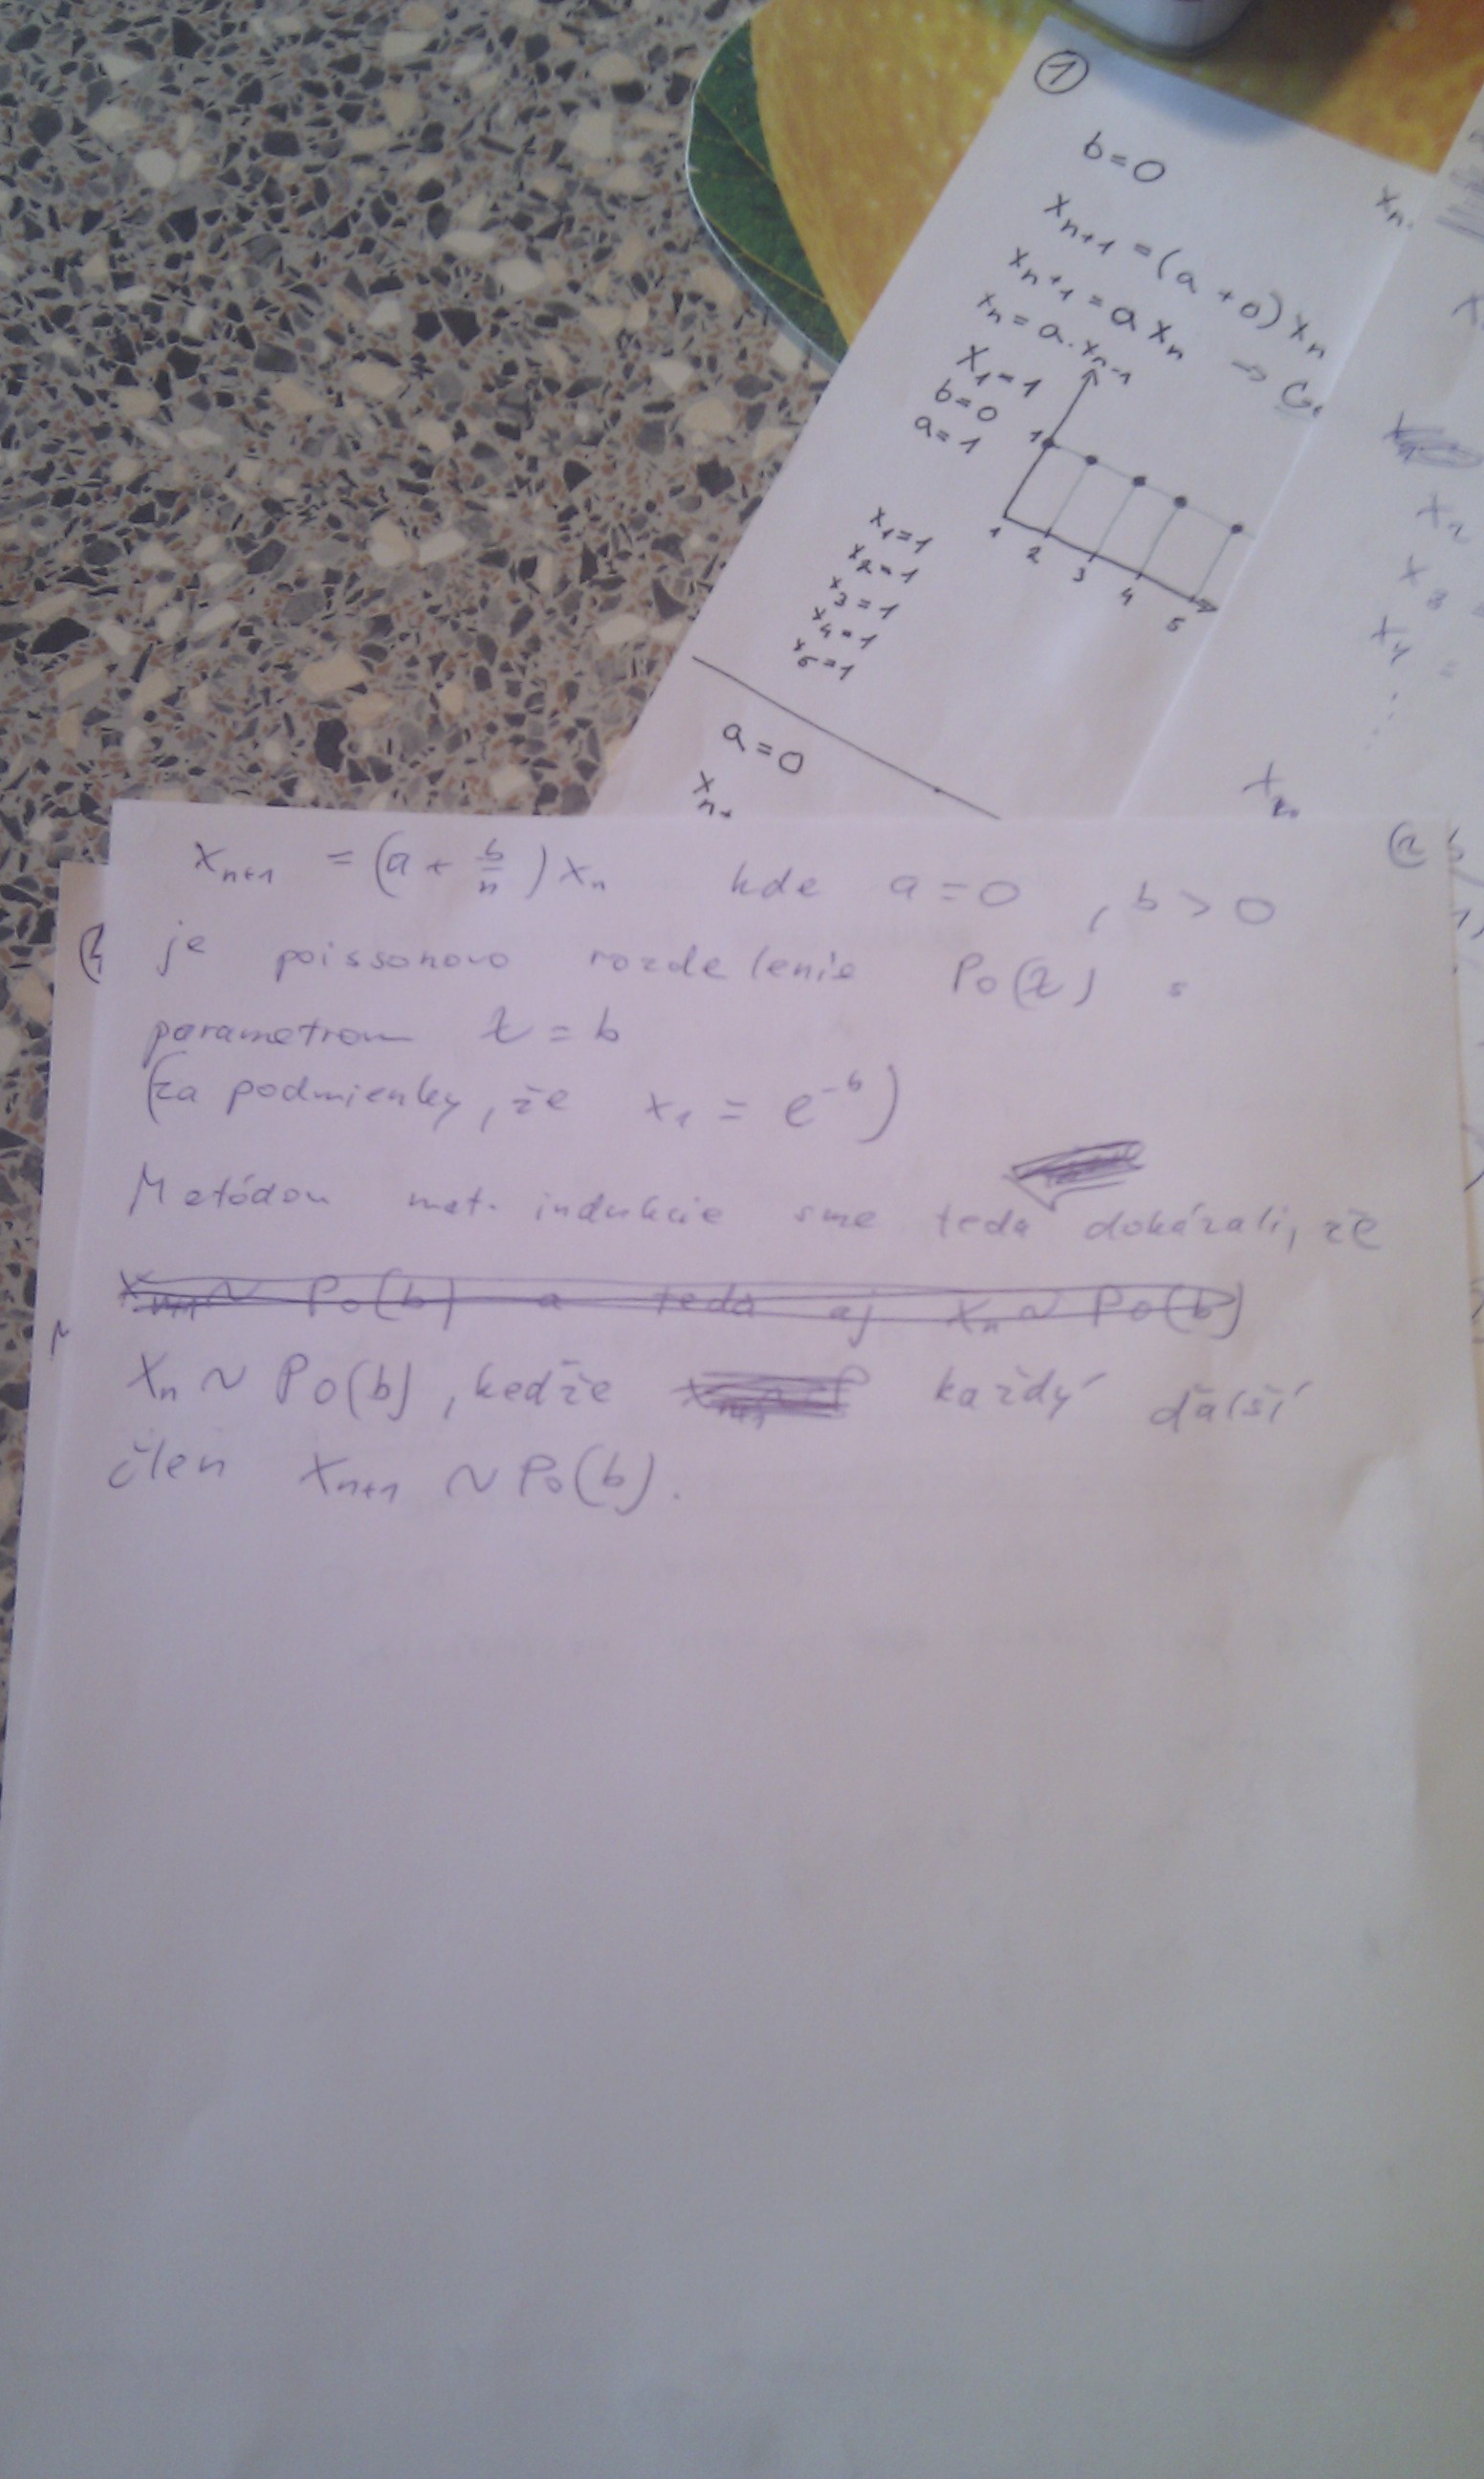 ①
b=0
x_{n+1} = (a + 0) x_n
x_{n+1} = a x_n →
x_n = a · x_{n-1}
x_1 = 1
b=0
a=1
1
1 2 3 4 5
x_1=1
x_2=1
x_3=1
x_4=1
x_5=1
a=0
x_n
x_2
x_3 =
x_4 =
x_{n+1} = (a + b/n) x_n kde a=0 , b>0
je poissonovo rozdelenie Po(λ) s
parametrom λ = b
(za podmienky, že x_1 = e^{-b})
Metódou mat. indukcie sme teda dokázali, že
x_{n+1} ~ Po(b) a teda aj x_n ~ Po(b)
x_n ~ Po(b), kedže každý ďalší
člen x_{n+1} ~ Po(b).